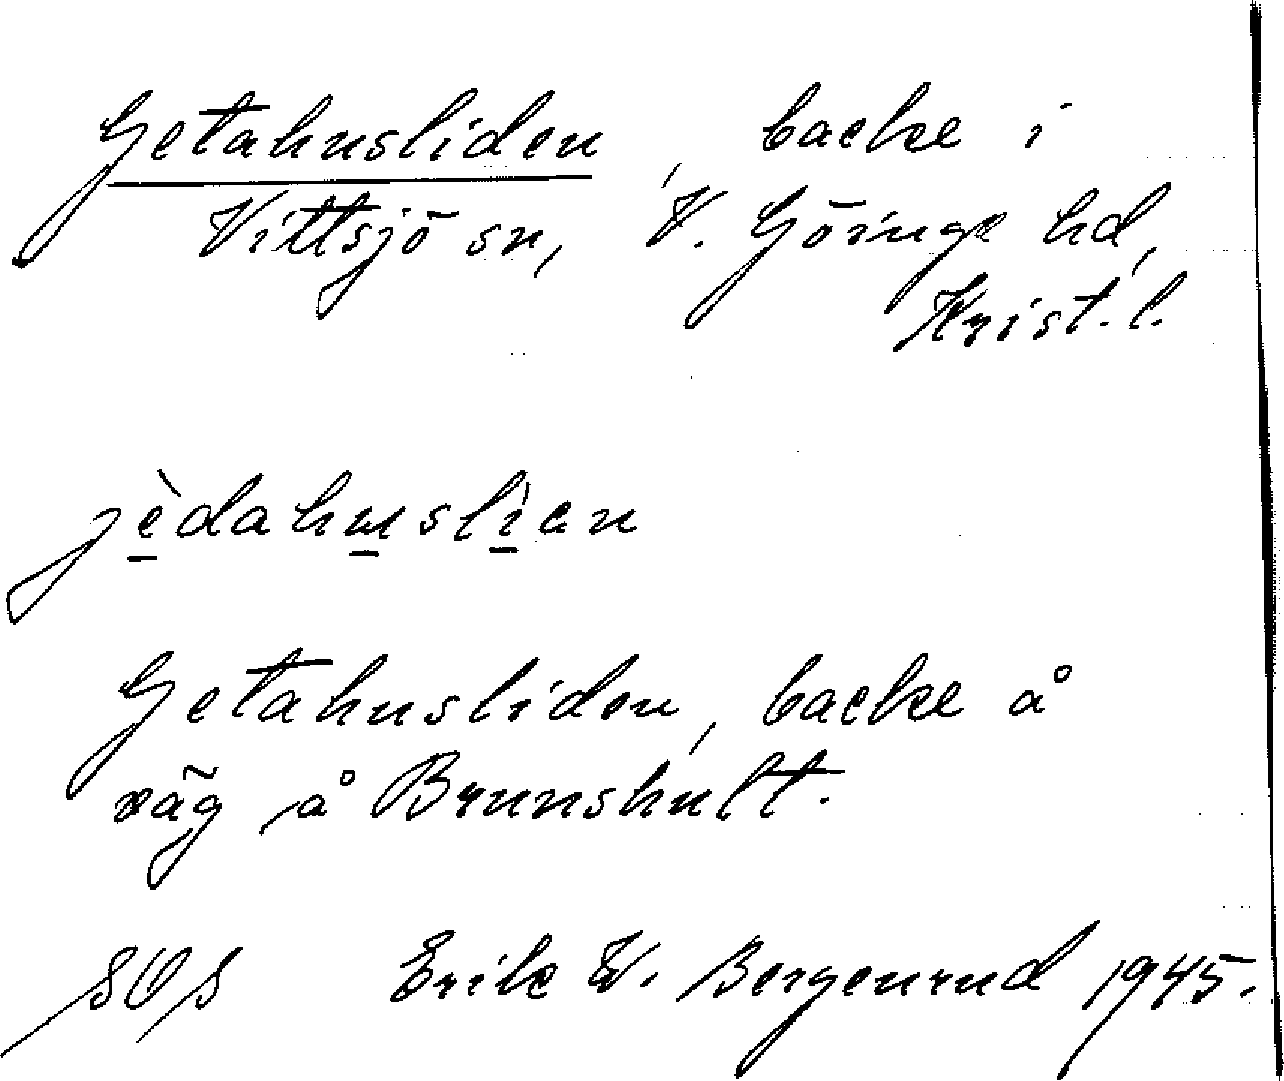 Getahusliden, backe i
Vittsjö sn, V. Göinge hd,
Krist. l.
jèdahuslìen
Getahusliden, backe å
väg å Brunshult.
SOS Erik W. Bergenrud 1945.